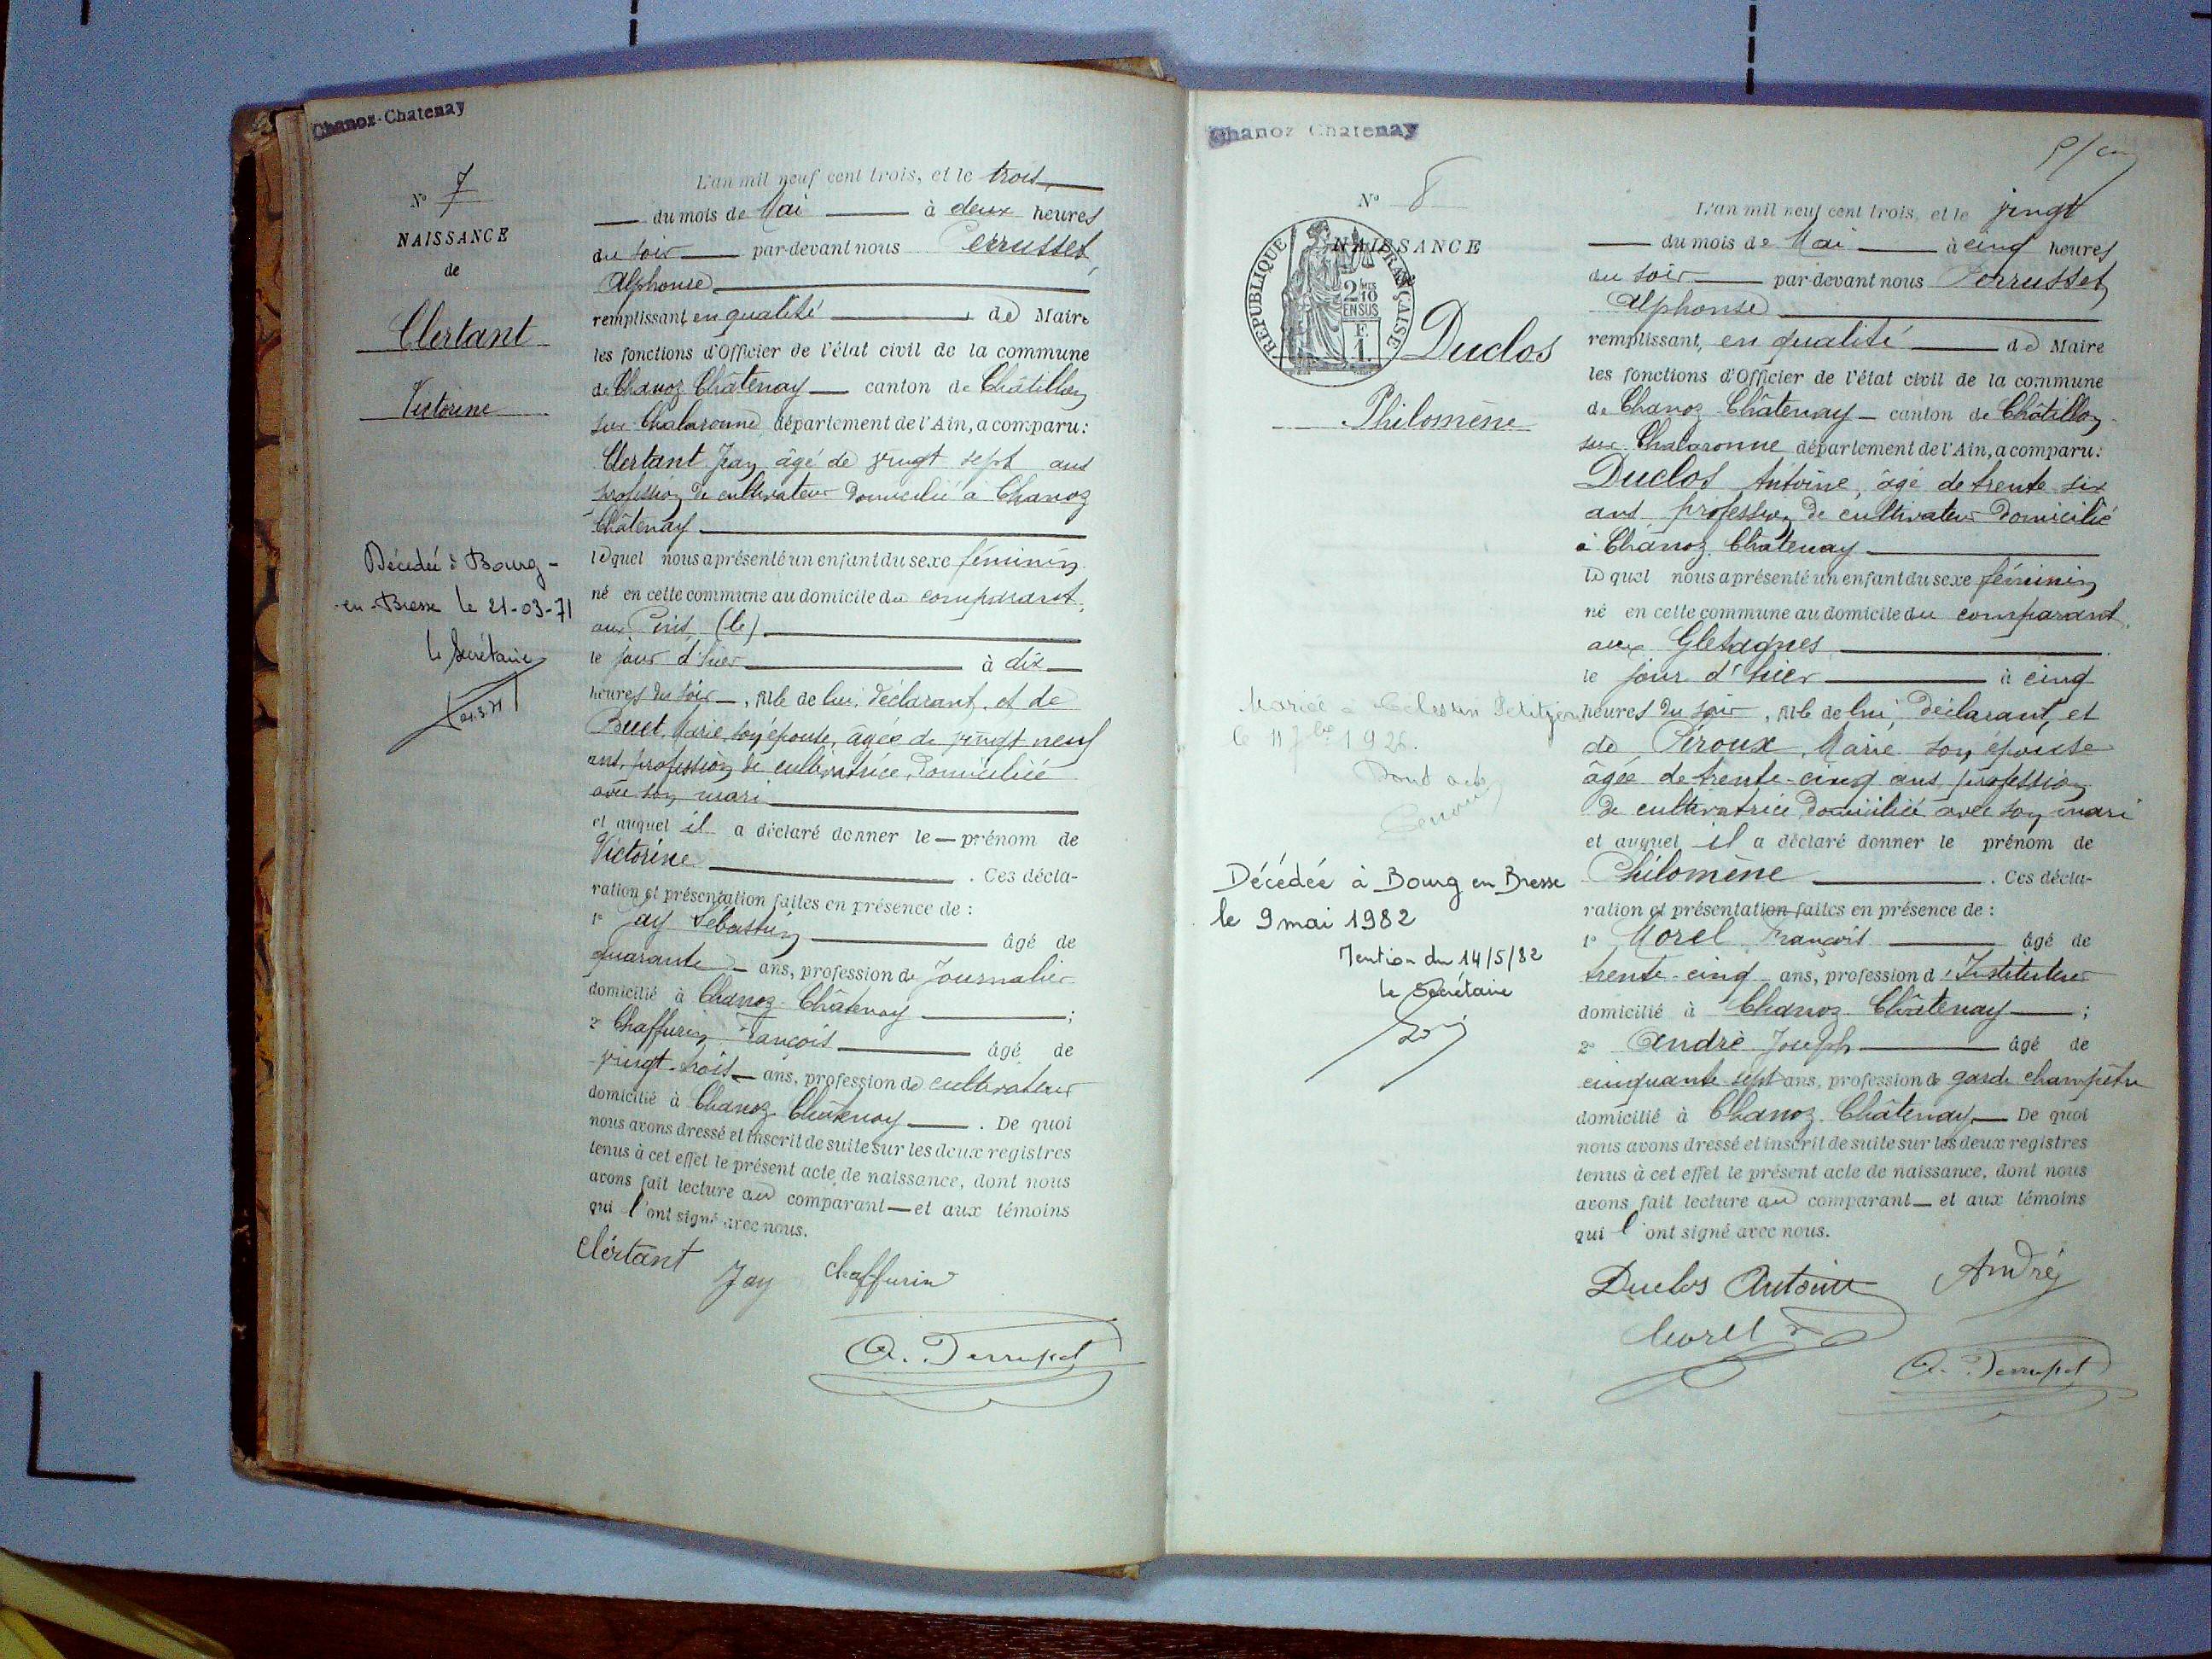 Chanoz-Chatenay
N° 7
NAISSANCE
de
Clertant
Victorine
Décédée à Bourg-
-en-Bresse le 21-03-71
le Secrétaire
L'an mil neuf cent trois, et le trois
du mois de Mai à deux heures
du soir par-devant nous Perrusset
Alphonse
remplissant en qualité de Maire
les fonctions d'Officier de l'état civil de la commune
de Chanoz Châtenay canton de Châtillon
sur Chalaronne département de l'Ain, a comparu:
Clertant Jean âgé de vingt sept ans
profession de cultivateur domicilié à Chanoz
Châtenay
lequel nous a présenté un enfant du sexe féminin
né en cette commune au domicile du comparant,
aux (le)
le jour d'hier à dix
heures du soir, née de lui, déclarant, et de
Buet Marie, son épouse, âgée de vingt neuf
ans, profession de cultivatrice, domiciliée
avec son mari
et auquel il a déclaré donner le prénom de
Victorine. Ces décla-
ration et présentation faites en présence de:
1° Jay Sébastien âgé de
quarante ans, profession de Journalier
domicilié à Chanoz-Châtenay;
2° Chaffurin François âgé de
vingt-trois ans, profession de cultivateur
domicilié à Chanoz Châtenay. De quoi
nous avons dressé et inscrit de suite sur les deux registres
tenus à cet effet le présent acte de naissance, dont nous
avons fait lecture au comparant et aux témoins
qui l'ont signé avec nous.
Clertant Jay Chaffurin
A. Perrusset
Chanoz Chatenay
N° 8
NAISSANCE
de
RÉPUBLIQUE FRANÇAISE
2/10 EN SUS
F
1
Duclos
Philomène
Mariée à Célestin Petitjean
le 11 7bre 1926.
Dont acte
Décédée à Bourg en Bresse
le 9 mai 1982
Mention du 14/5/82
le Secrétaire
L'an mil neuf cent trois, et le vingt
du mois de Mai à cinq heures
du soir par-devant nous Perrusset
Alphonse
remplissant, en qualité de Maire
les fonctions d'Officier de l'état civil de la commune
de Chanoz-Châtenay canton de Châtillon-
sur-Chalaronne département de l'Ain, a comparu:
Duclos Antoine, âgé de trente six
ans profession de cultivateur domicilié
à Chanoz Châtenay
lequel nous a présenté un enfant du sexe féminin
né en cette commune au domicile du comparant,
aux Gletagnes
le jour d'hier à cinq
heures du soir, née de lui déclarant, et
de Péroux Marie son épouse
âgée de trente-cinq ans, profession
de cultivatrice, domiciliée avec son mari
et auquel il a déclaré donner le prénom de
Philomène. Ces décla-
ration et présentation faites en présence de:
1° Morel François âgé de
trente-cinq ans, profession d'Instituteur
domicilié à Chanoz Châtenay;
2° André Joseph âgé de
cinquante sept ans, profession de garde champêtre
domicilié à Chanoz Châtenay. De quoi
nous avons dressé et inscrit de suite sur les deux registres
tenus à cet effet le présent acte de naissance, dont nous
avons fait lecture au comparant et aux témoins
qui l'ont signé avec nous.
Duclos Antoine André
Morel
A. Perrusset